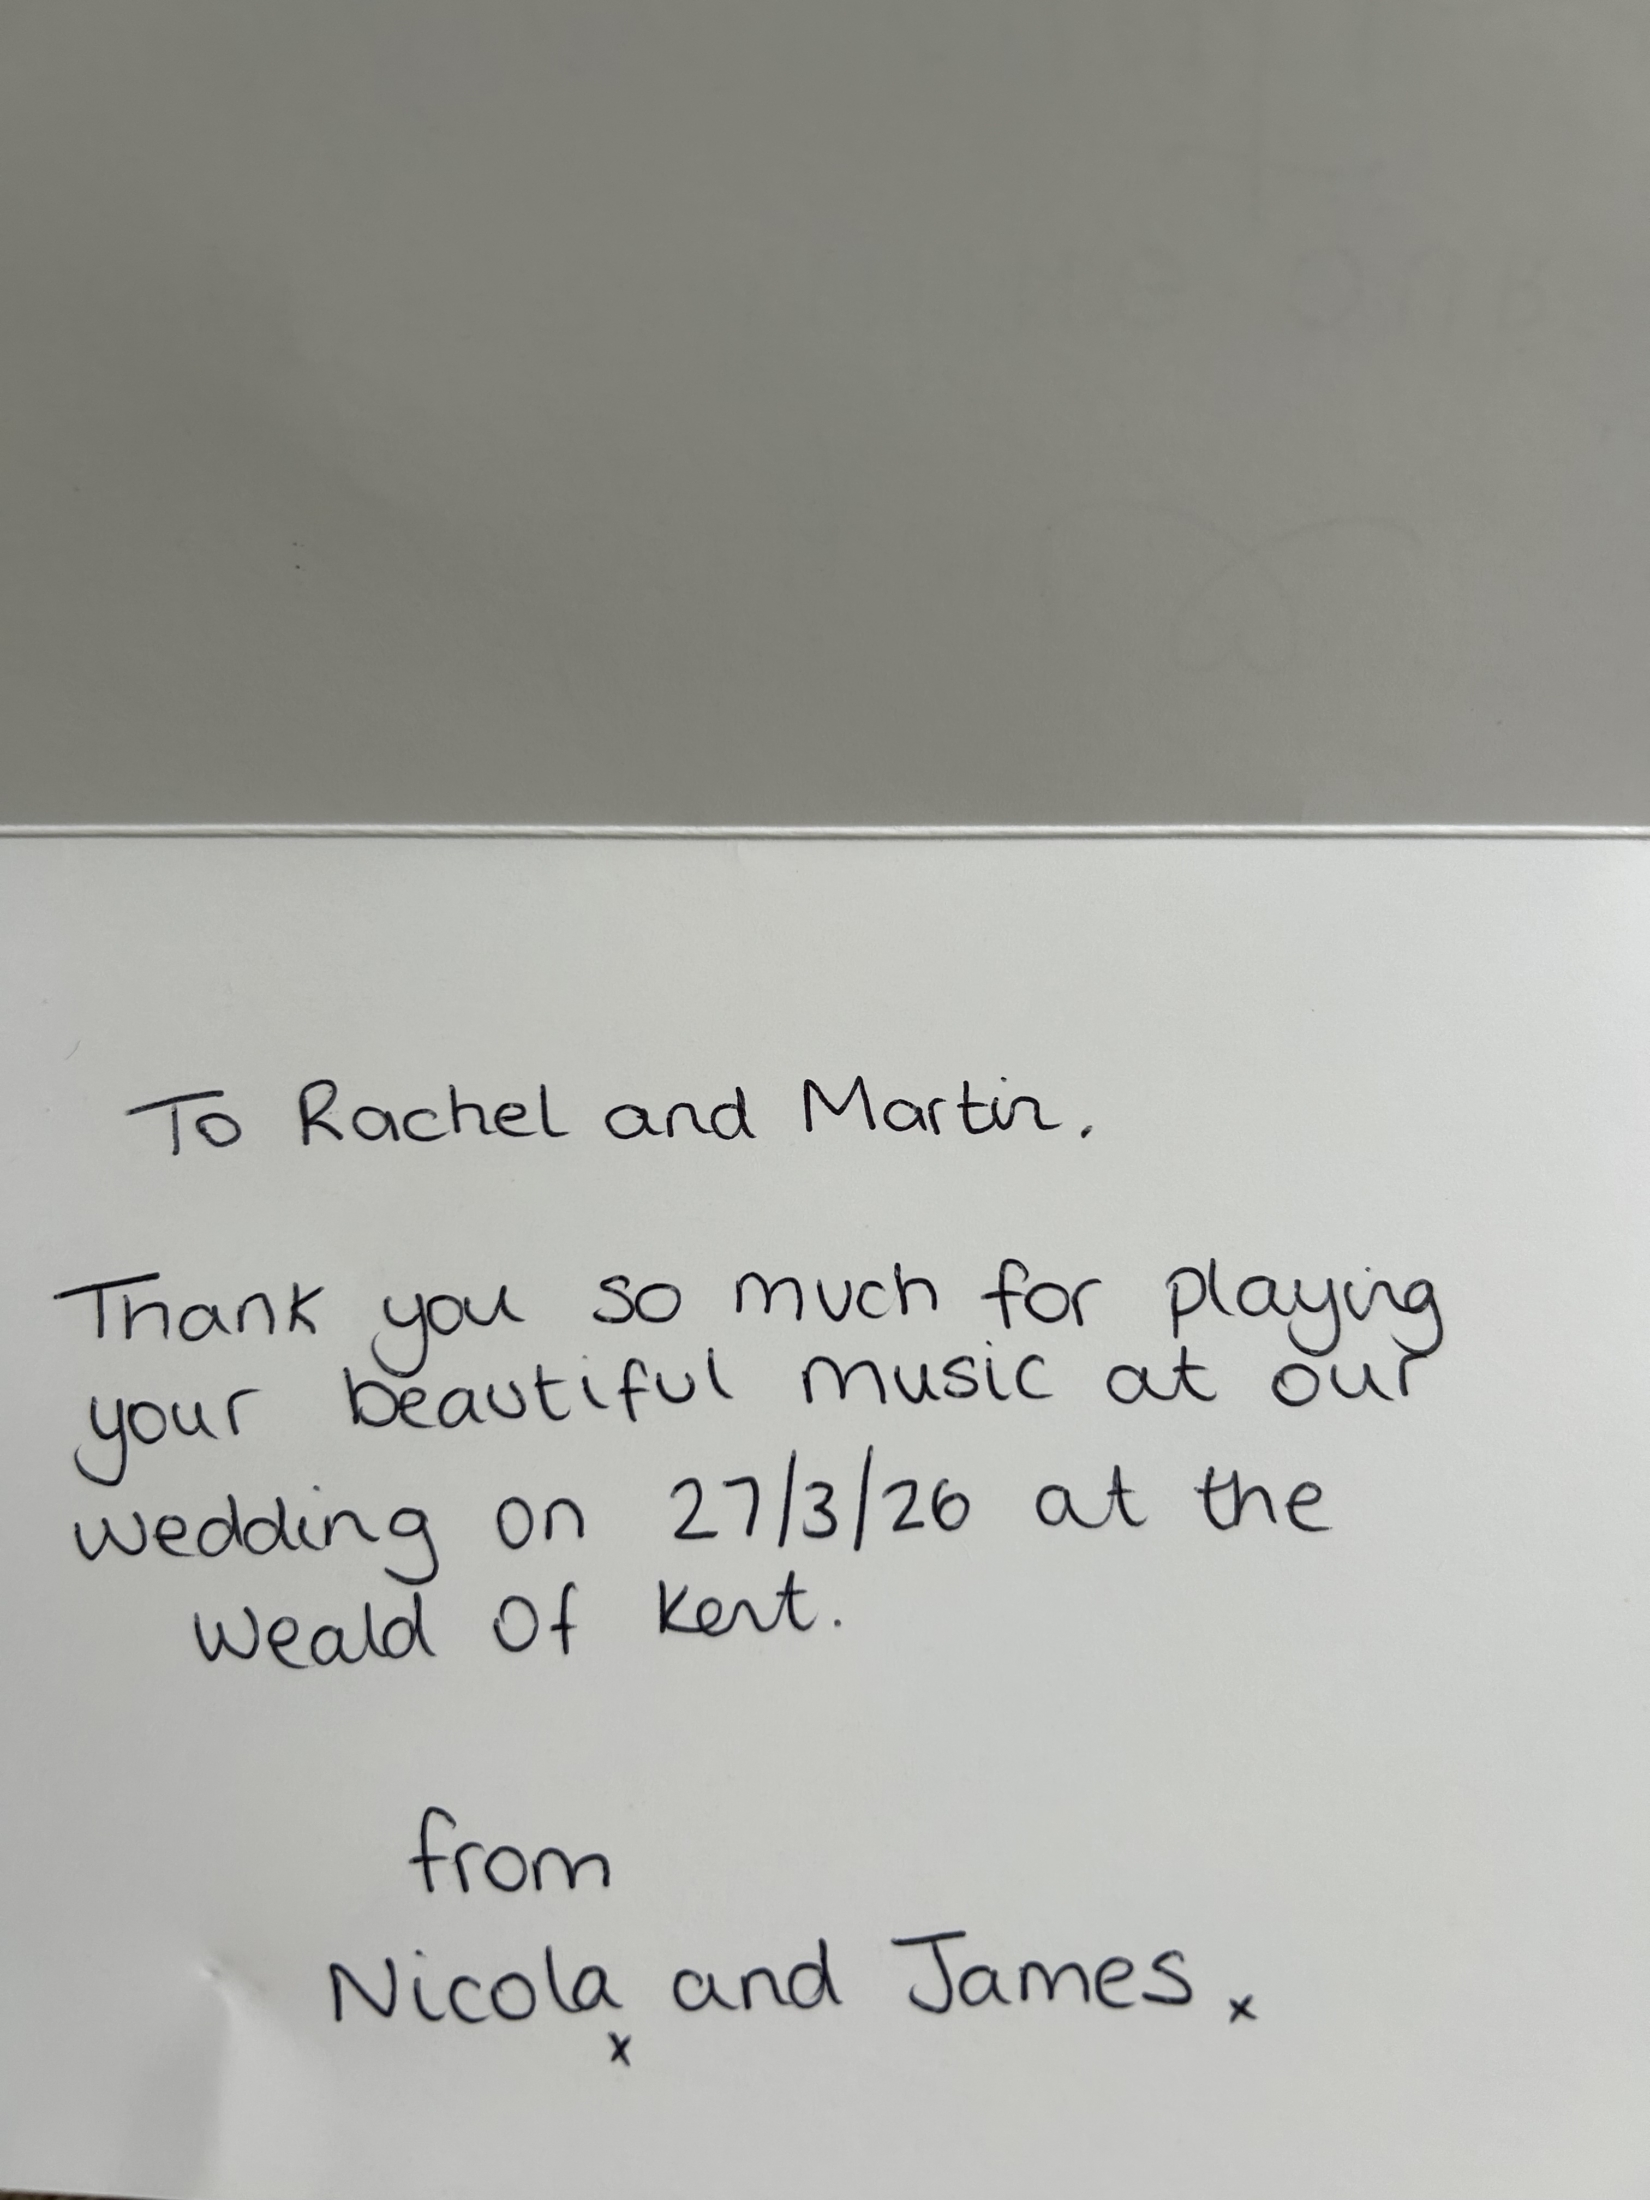 To Rachel and Martin.
Thank you so much for playing
your beautiful music at our
wedding on 27/3/26 at the
Weald Of Kent.
from
Nicola and James. x
x